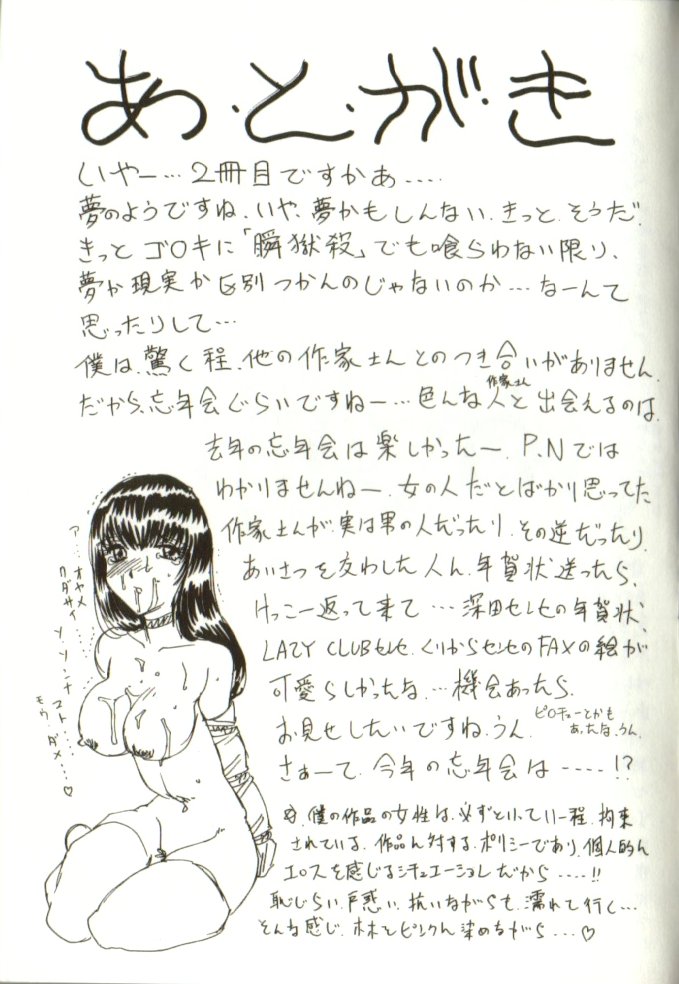 あ・と・が・き
いやー…2冊目ですかあ‥‥
夢のようですね、いや、夢かもしんない、きっと、そうだ、
きっとゴロキに「瞬獄殺」でも喰らわない限り、
夢か現実か区別つかんのじゃないのか…なーんて
思ったりして…
僕は、驚く程、他の作家さんとのつき合いがありません、
だから、忘年会ぐらいですねー…色んな人と出会えるのは、
作家さん
去年の忘年会は楽しかったー、P.Nでは
わかりませんねー、女の人だとばかり思ってた
作家さんが、実は男の人だったり、その逆だったり、
あいさつを交わした人に、年賀状送ったら、
けっこー返って来て…深田センセの年賀状、
LAZY CLUBセンセ、くりからセンセのFAXの絵が
可愛らしかったな、…機会あったら、
お見せしたいですね、うん、
ピロチューとかも
あったな、うん、
さぁーて、今年の忘年会は‥‥!?
僕の作品の女性は、必ずといってい一程、拘束
されている、作品に対する、ポリシーであり、個人的に
エロスを感じるシチュエーションだから‥‥!!
恥じらい、戸惑い、抗いながらも、濡れて行く…
そんな感じ、ホホをピンクに染めながら…♡
ア…オヤメ
クダサイ…
ソ・ソンナ
コト……
モウ…ダメ…♡